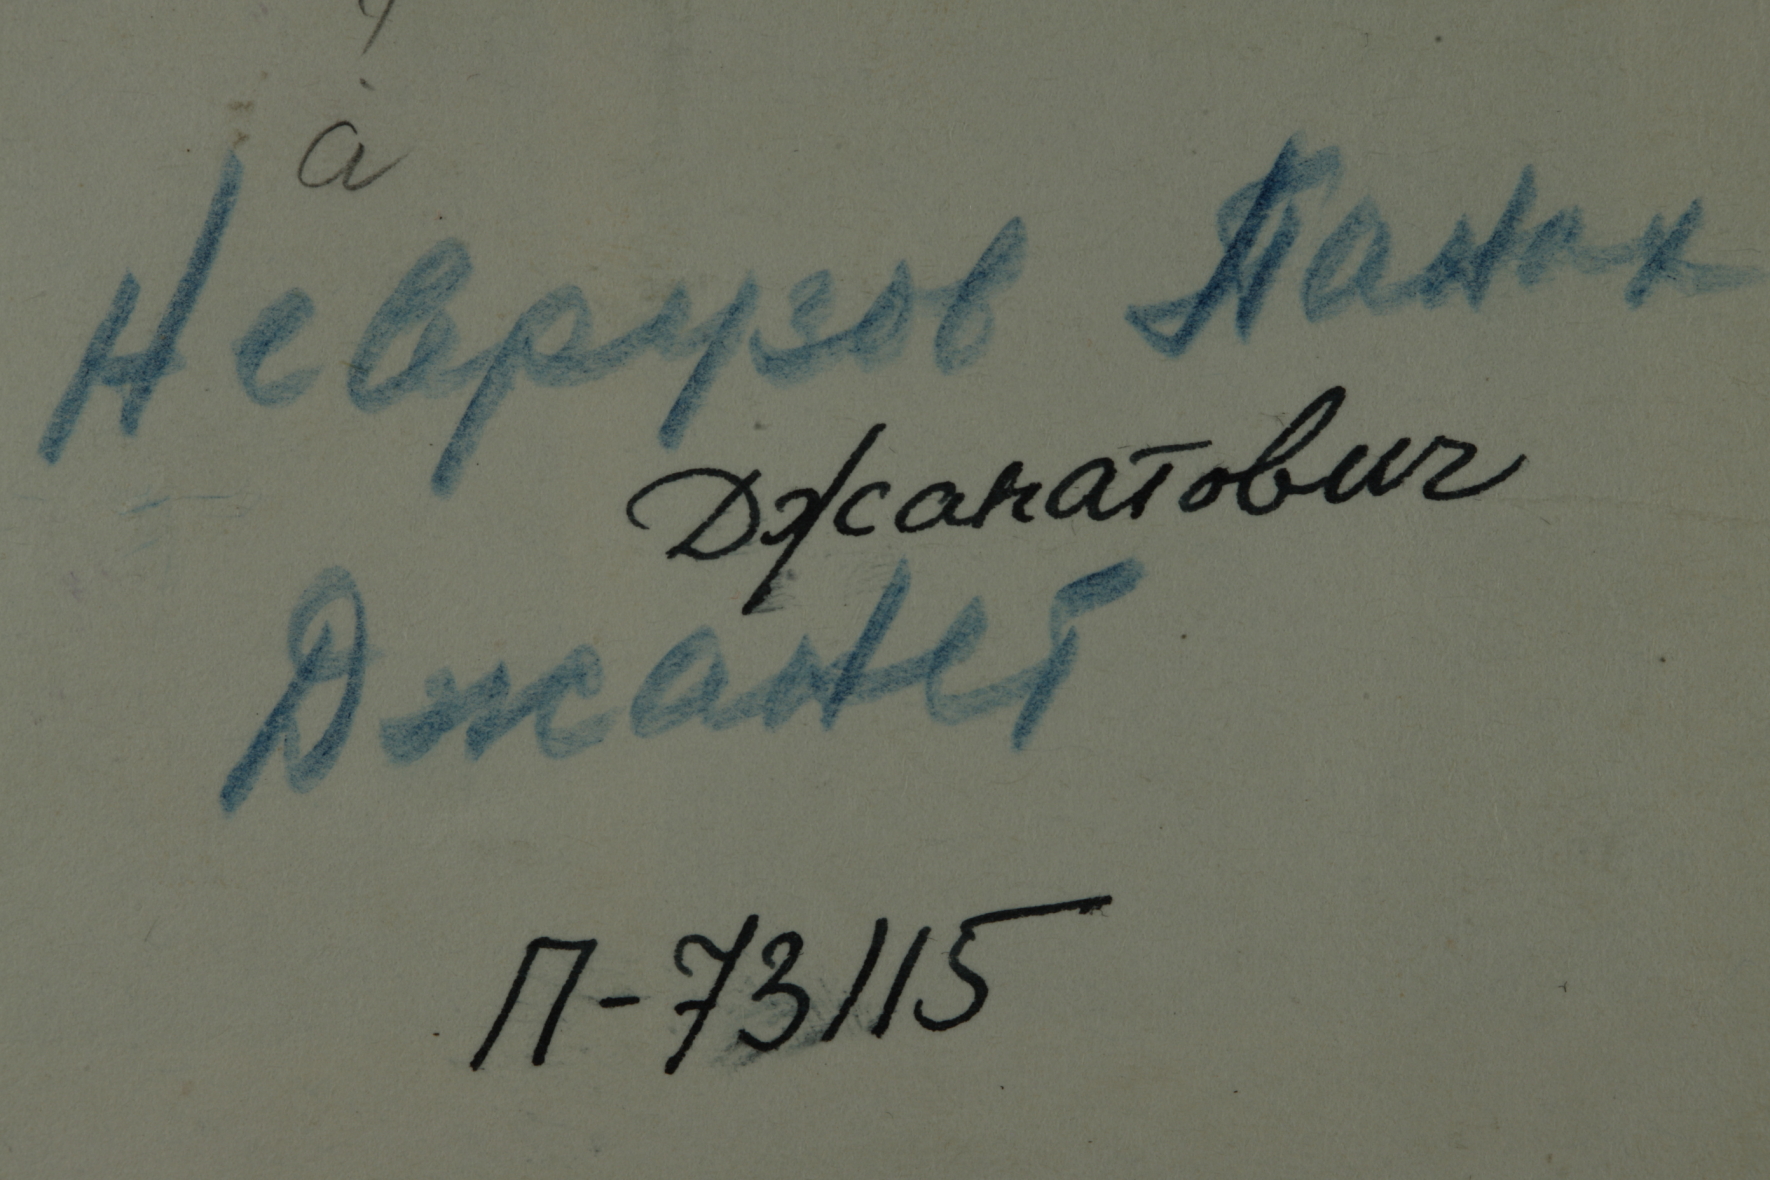 а
Неврузов Панах
Джанатович
Джанет
П-73/15